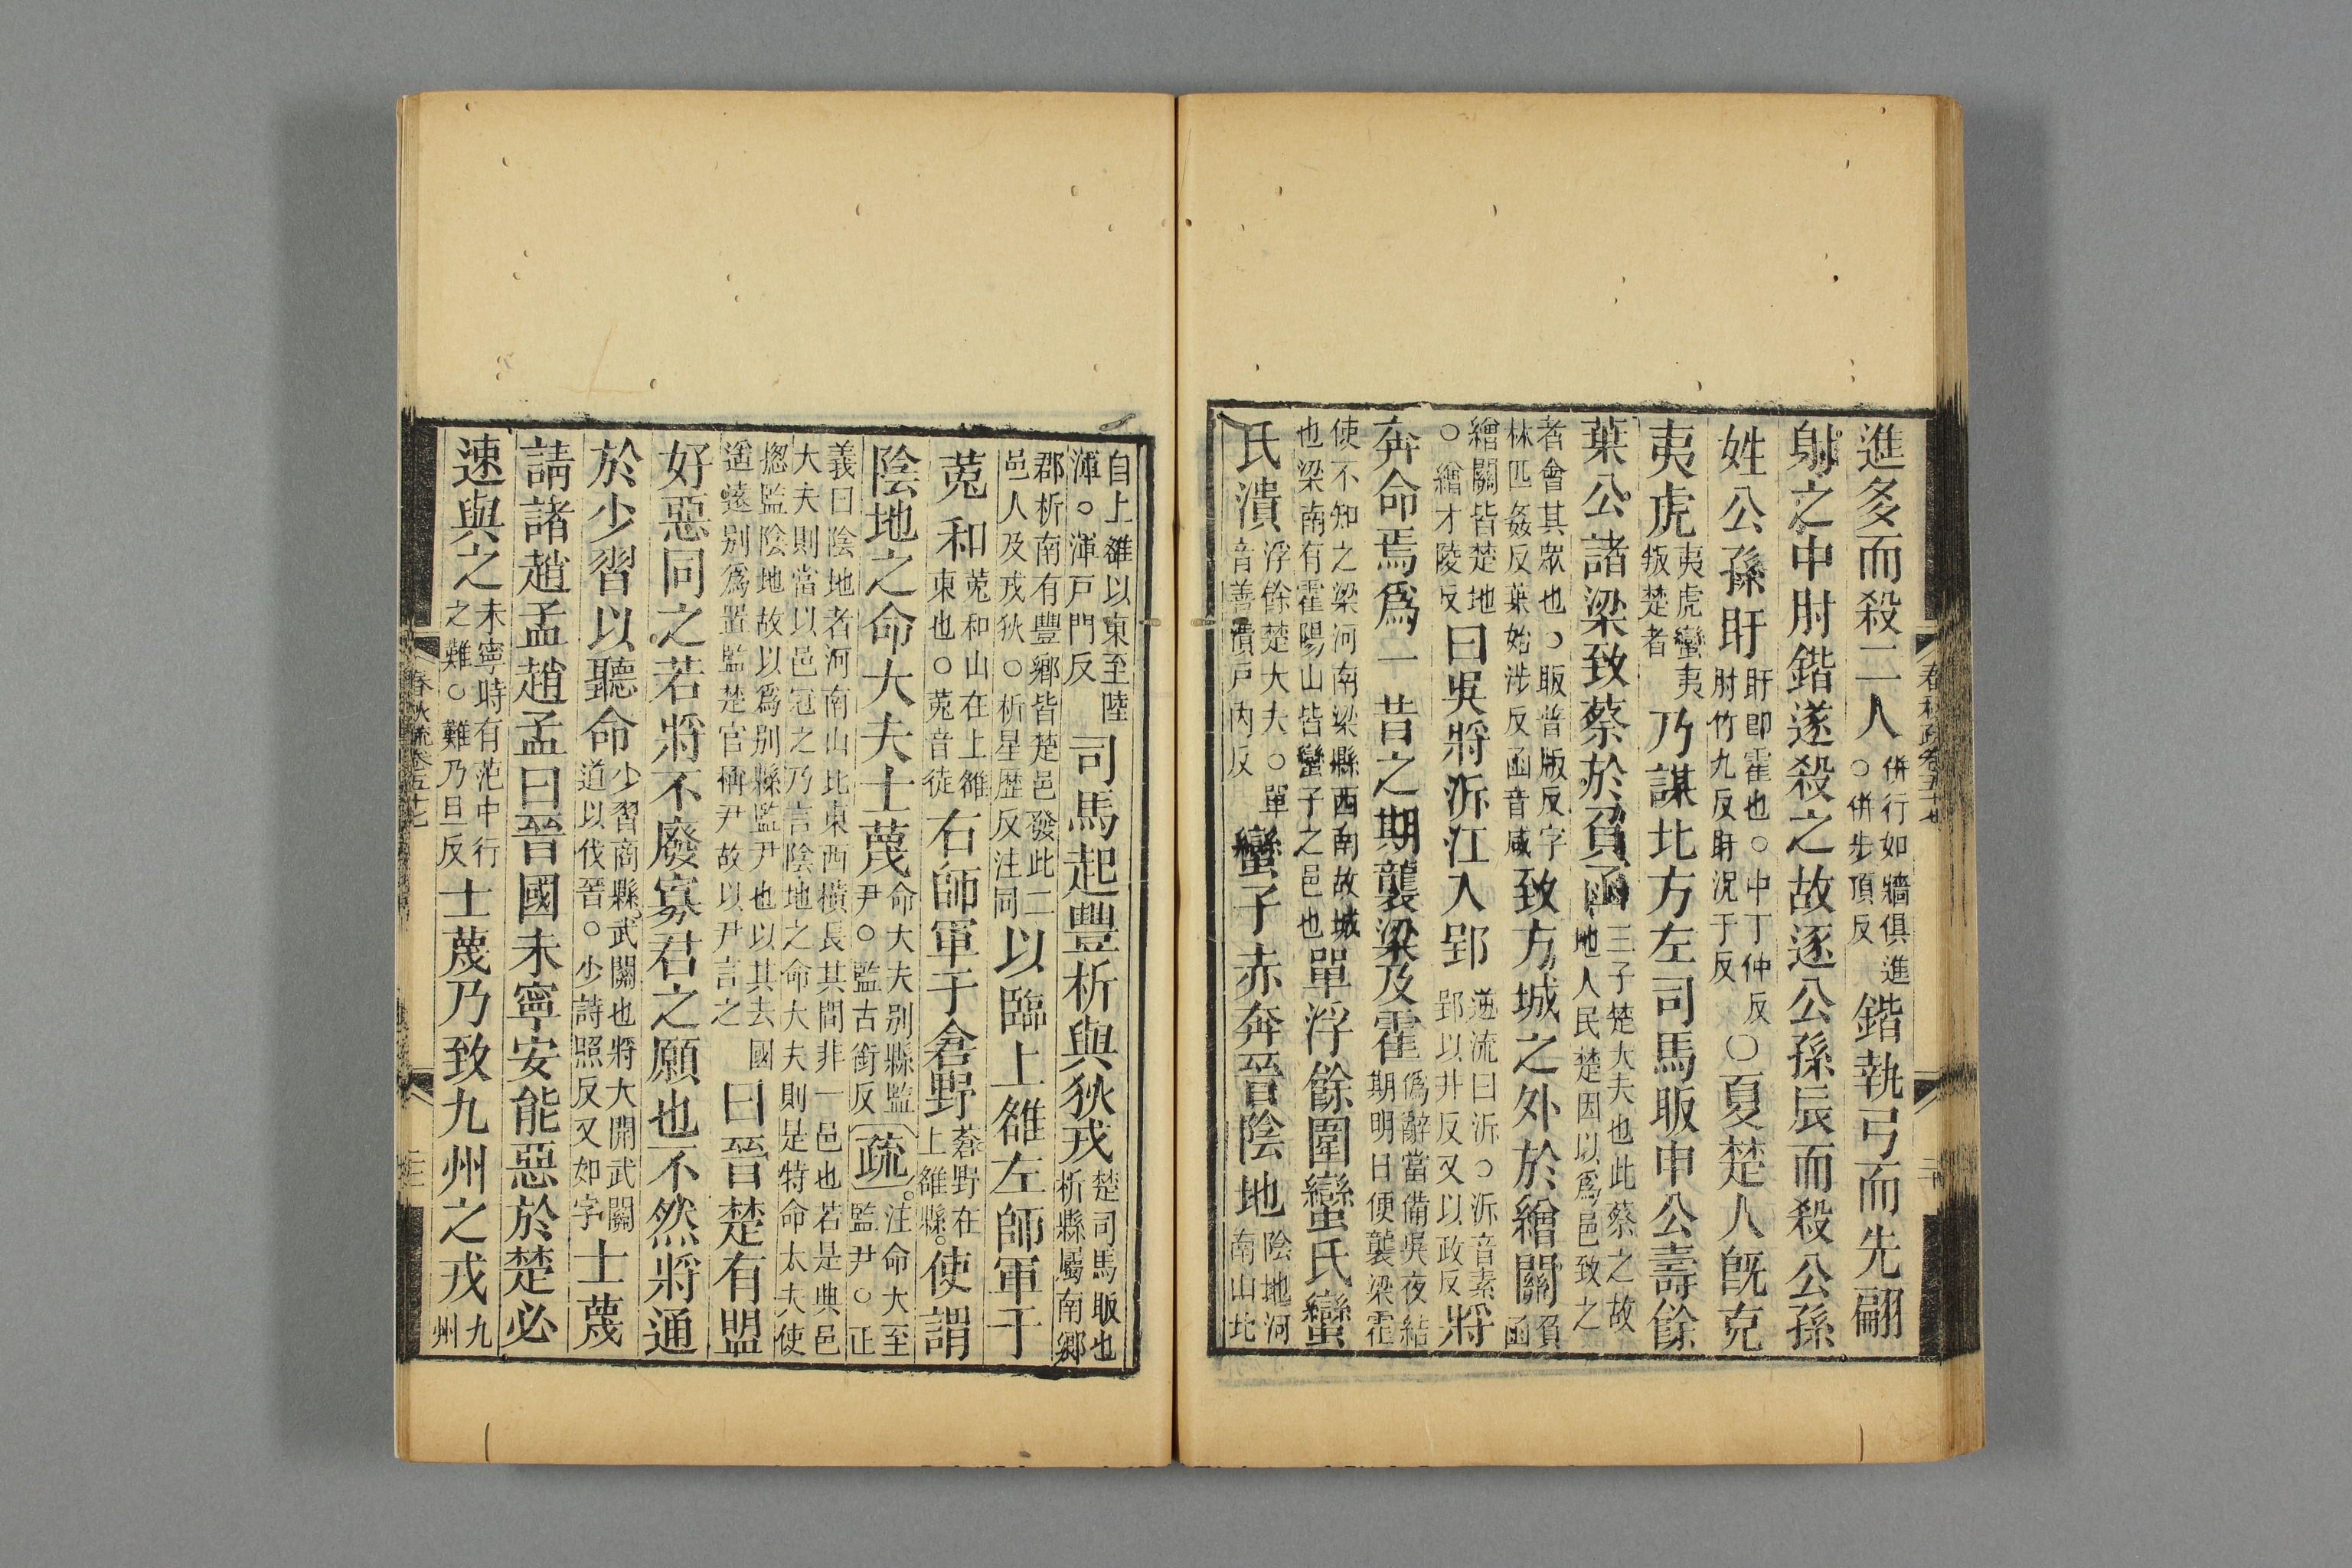 進多而殺二人併行如牆俱進○併步頂反鍇執弓而先翩
射之中肘鍇遂殺之故逐公孫辰而殺公孫
姓公孫盱盱即霍也○中丁仲反肘竹九反盱況于反○夏楚人旣克
夷虎夷虎蠻夷叛楚者乃謀北方左司馬眅申公壽餘
葉公諸梁致蔡於負函三子楚大夫也此蔡之故地人民楚因以爲邑致之
者會其衆也○眅普版反字林匹姦反葉始涉反函音咸致方城之外於繒關負函
繒關皆楚地○繒才陵反曰吳將泝江入郢逆流曰泝○泝音素郢以井反又以政反將
奔命焉爲一昔之期襲梁及霍僞辭當備吳夜結期明日便襲梁霍
使不知之梁河南梁縣西南故城也梁南有霍陽山皆蠻子之邑也單浮餘圍蠻氏蠻
氏潰浮餘楚大夫○單音善潰戸內反蠻子赤奔晉陰地陰地河南山北
自上雒以東至陸渾○渾戸門反司馬起豐析與狄戎楚司馬眅也析縣屬南鄉
郡析南有豐鄉皆楚邑發此二邑人及戎狄○析星歷反注同以臨上雒左師軍于
菟和菟和山在上雒東也○菟音徒右師軍于倉野蒼野在上雒縣使謂
陰地之命大夫士蔑命大夫別縣監尹○監古銜反疏注命大至監尹○正
義曰陰地者河南山北東西橫長其間非一邑也若是典邑大夫則當以邑冠之乃言陰地之命大夫則是特命大夫使
揔監陰地故以爲別縣監尹也以其去國遥遠別爲置監楚官稱尹故以尹言之曰晉楚有盟
好惡同之若將不廢寡君之願也不然將通
於少習以聽命少習商縣武關也將大開武關道以伐晉○少詩照反又如字士蔑
請諸趙孟趙孟曰晉國未寧安能惡於楚必
速與之未寧時有范中行之難○難乃旦反士蔑乃致九州之戎九州